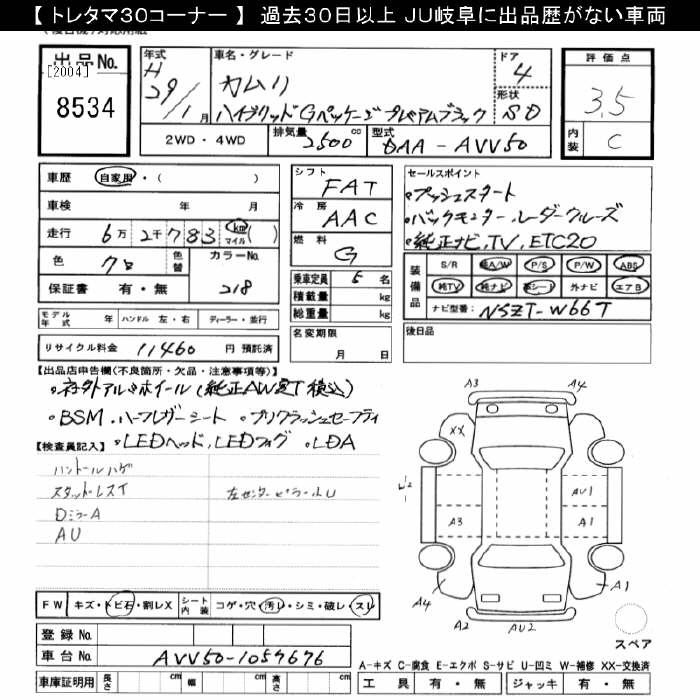 【トレタマ30コーナー】 過去30日以上 JU岐阜に出品歴がない車両
出品No.
[2004]
8534
年式 H 29/1月
車名・グレード
カムリ
ハイブリッドGパッケージプレミアムブラック
ドア 4
形状 SD
2WD・4WD 排気量 2500cc 型式 DAA-AVV50
評価点
3.5
内装 C
車歴 自家用・( )
車検 年 月
走行 6万2千783 km マイル( )
色 クロ 色替 カラーNo. 218
保証書 有・無
モデル年式 年 ハンドル 左・右 ディーラー・並行
リサイクル料金 11460 円 預託済
シフト FAT
冷房 AAC
燃料 G
乗車定員 5 名
積載量 kg
総重量 kg
名変期限
月 日
セールスポイント
・プッシュスタート
・バックモニター・レーダークルーズ
・純正ナビ,TV,ETC20
装備品
S/R 純A/W P/S P/W ABS
純TV 純ナビ 革シート 外ナビ エアB
ナビ型番: NSZT-W66T
後日品
【出品店申告欄(不良箇所・欠品・注意事項等)】
・社外アルミホイール(純正AW 積込)
・BSM・ハーフレザーシート ・プリクラッシュセーフティ
・LEDヘッド,LEDフォグ ・LDA
【検査員記入】
ハンドルハゲ
スタッドレスイ
左センターピラー小U
DミラーA
AU
A3
A4
XX
AU1
A3
A1
A4
A1
A2
AU2
スペア
FW キズ・トビ石・割レX シート内装 コゲ・穴・汚レ・シミ・破レ・スレ
登録No.
車台No. AVV50-1059676
車庫証明用 長さ cm 幅 cm 高さ cm
A-キズ C-腐食 E-エクボ S-サビ U-凹ミ W-補修 XX-交換済
工具 有・無 ジャッキ 有・無